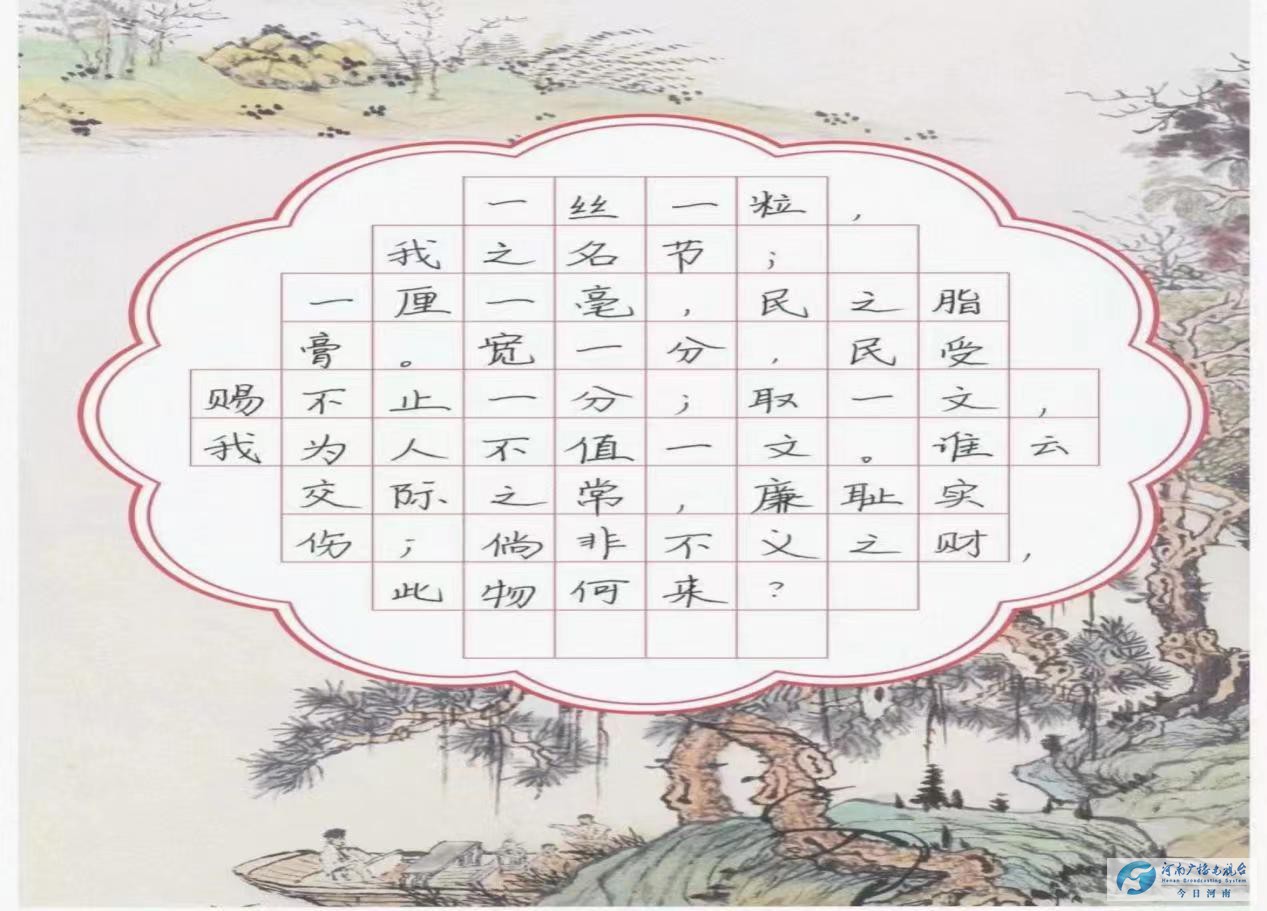 一丝一粒，
我之名节；
一厘一毫，民之脂
膏。宽一分，民受
赐不止一分；取一文，
我为人不值一文。谁云
交际之常，廉耻实
伤；倘非不义之财，
此物何来？
河南广播电视台
Henan Broadcasting System
今日河南